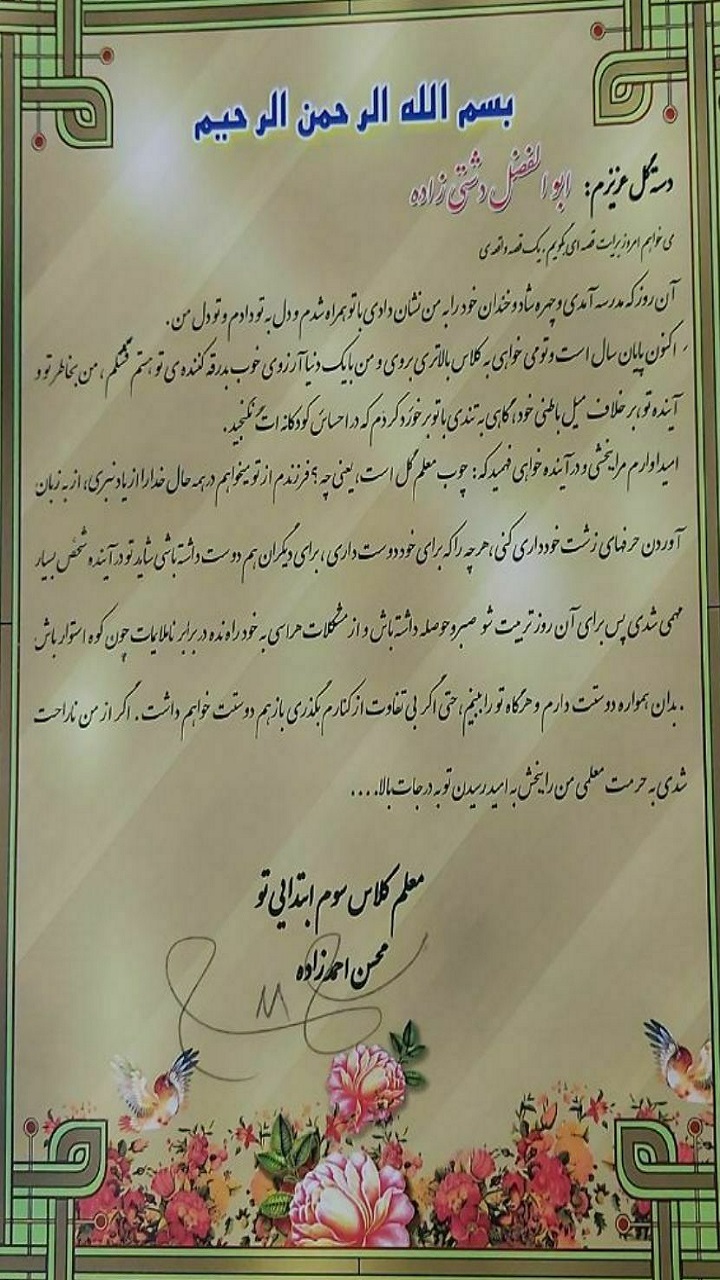 بسم الله الرحمن الرحیم
دسته گل عزیزم: ابوالفضل دشتی زاده
می خواهم امروز برایت قصه ای بگویم. یک قصه واقعی
آن روز که مدرسه آمدی و چهره شاد و خندان خود را به من نشان دادی با تو همراه شدم و دل به تو دادم و تو دل من.
اکنون پایان سال است و تو می خواهی به کلاس بالاتری بروی و من با یک دنیا آرزوی خوب بدرقه کننده ی تو هستم قشنگم، من بخاطر تو و
آینده تو، بر خلاف میل باطنی خود، گاهی به تندی با تو برخورد کردم که در احساس کودکانه ات نگنجید.
امیداوارم مرا ببخشی و در آینده خواهی فهمید که: چوب معلم گل است، یعنی چه؟ فرزندم از تو میخواهم در همه حال خدا را از یاد نبری، از به زبان
آوردن حرفهای زشت خودداری کنی، هر چه را که برای خود دوست داری، برای دیگران هم دوست داشته باشی شاید تو در آینده شخص بسیار
مهمی شدی پس برای آن روز تربیت شو صبر و حوصله داشته باش و از مشکلات هراسی به خود راه نده در برابر ناملایمات چون کوه استوار باش
. بدان همواره دوستت دارم و هرگاه تو را ببینم، حتی اگر بی تفاوت از کنارم بگذری باز هم دوستت خواهم داشت. اگر از من ناراحت
شدی به حرمت معلمی من را ببخش به امید رسیدن تو به درجات بالا....
معلم کلاس سوم ابتدایی تو
محسن احمدزاده